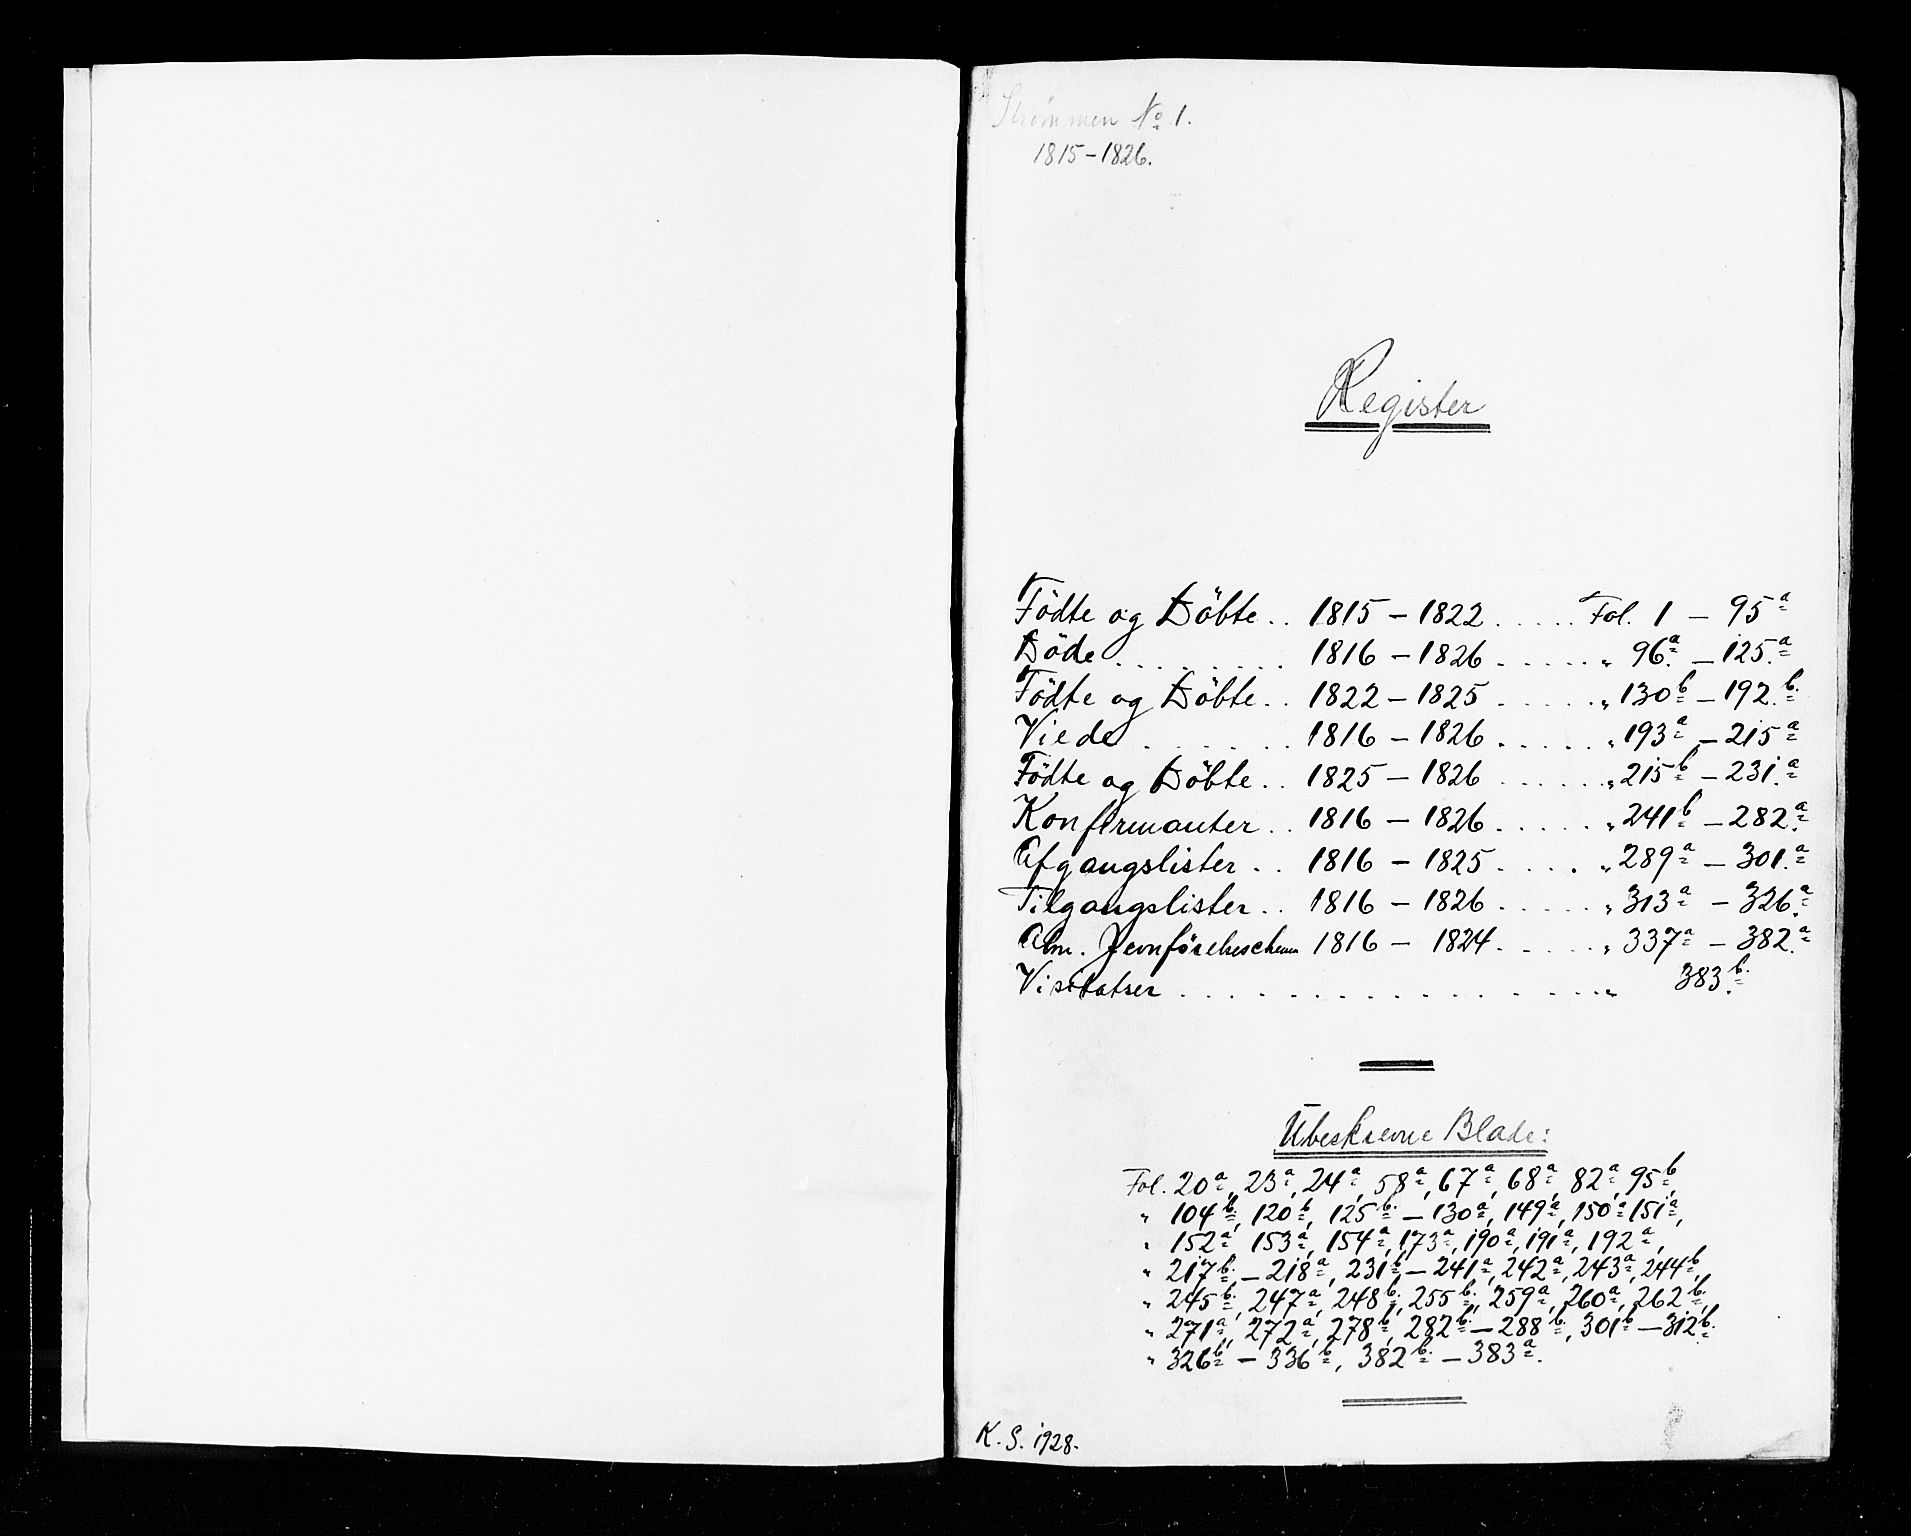 Strömmen No 1.
1815-1826.
Register
Födte og Döbte .. 1815 - 1822 ..... Fol. 1 - 95a
Döde ........ 1816 - 1826 ..... " 96a. - 125.a
Födte og Döbte .. 1822 - 1825 ..... " 130b - 192.b.
Viede ...... 1816 - 1826 ..... " 193a - 215a
Födte og Döbte .. 1825 - 1826 ..... " 215b - 231.a
Konfirmanter .. 1816 - 1826 ..... " 241b - 282.a
Afgangslister .. 1816 - 1825 .... " 289a - 301.a
Tilgangslister .. 1816 - 1826 ..... " 313a - 326.a
Alm. Jevnförelseschema 1816 - 1824 ..... " 337a - 382.a
Visitatser ................ " 383.b.
Ubeskrevne Blade:
Fol. 20a, 23a, 24a, 58a, 67a, 68a, 82a, 95b,
" 104b., 120b, 125b. - 130a, 149a, 150a 151a,
" 152a, 153a, 154a, 173a, 190a, 191a, 192a,
" 217b. - 218a, 231b - 241a, 242a, 243a, 244b,
" 245b., 247a, 248b, 255b., 259a, 260a, 262b.,
" 271a, 272a, 278b, 282b. - 288b., 301b - 312b.
" 326b - 336b, 382b. - 383a.
K. S. 1928.